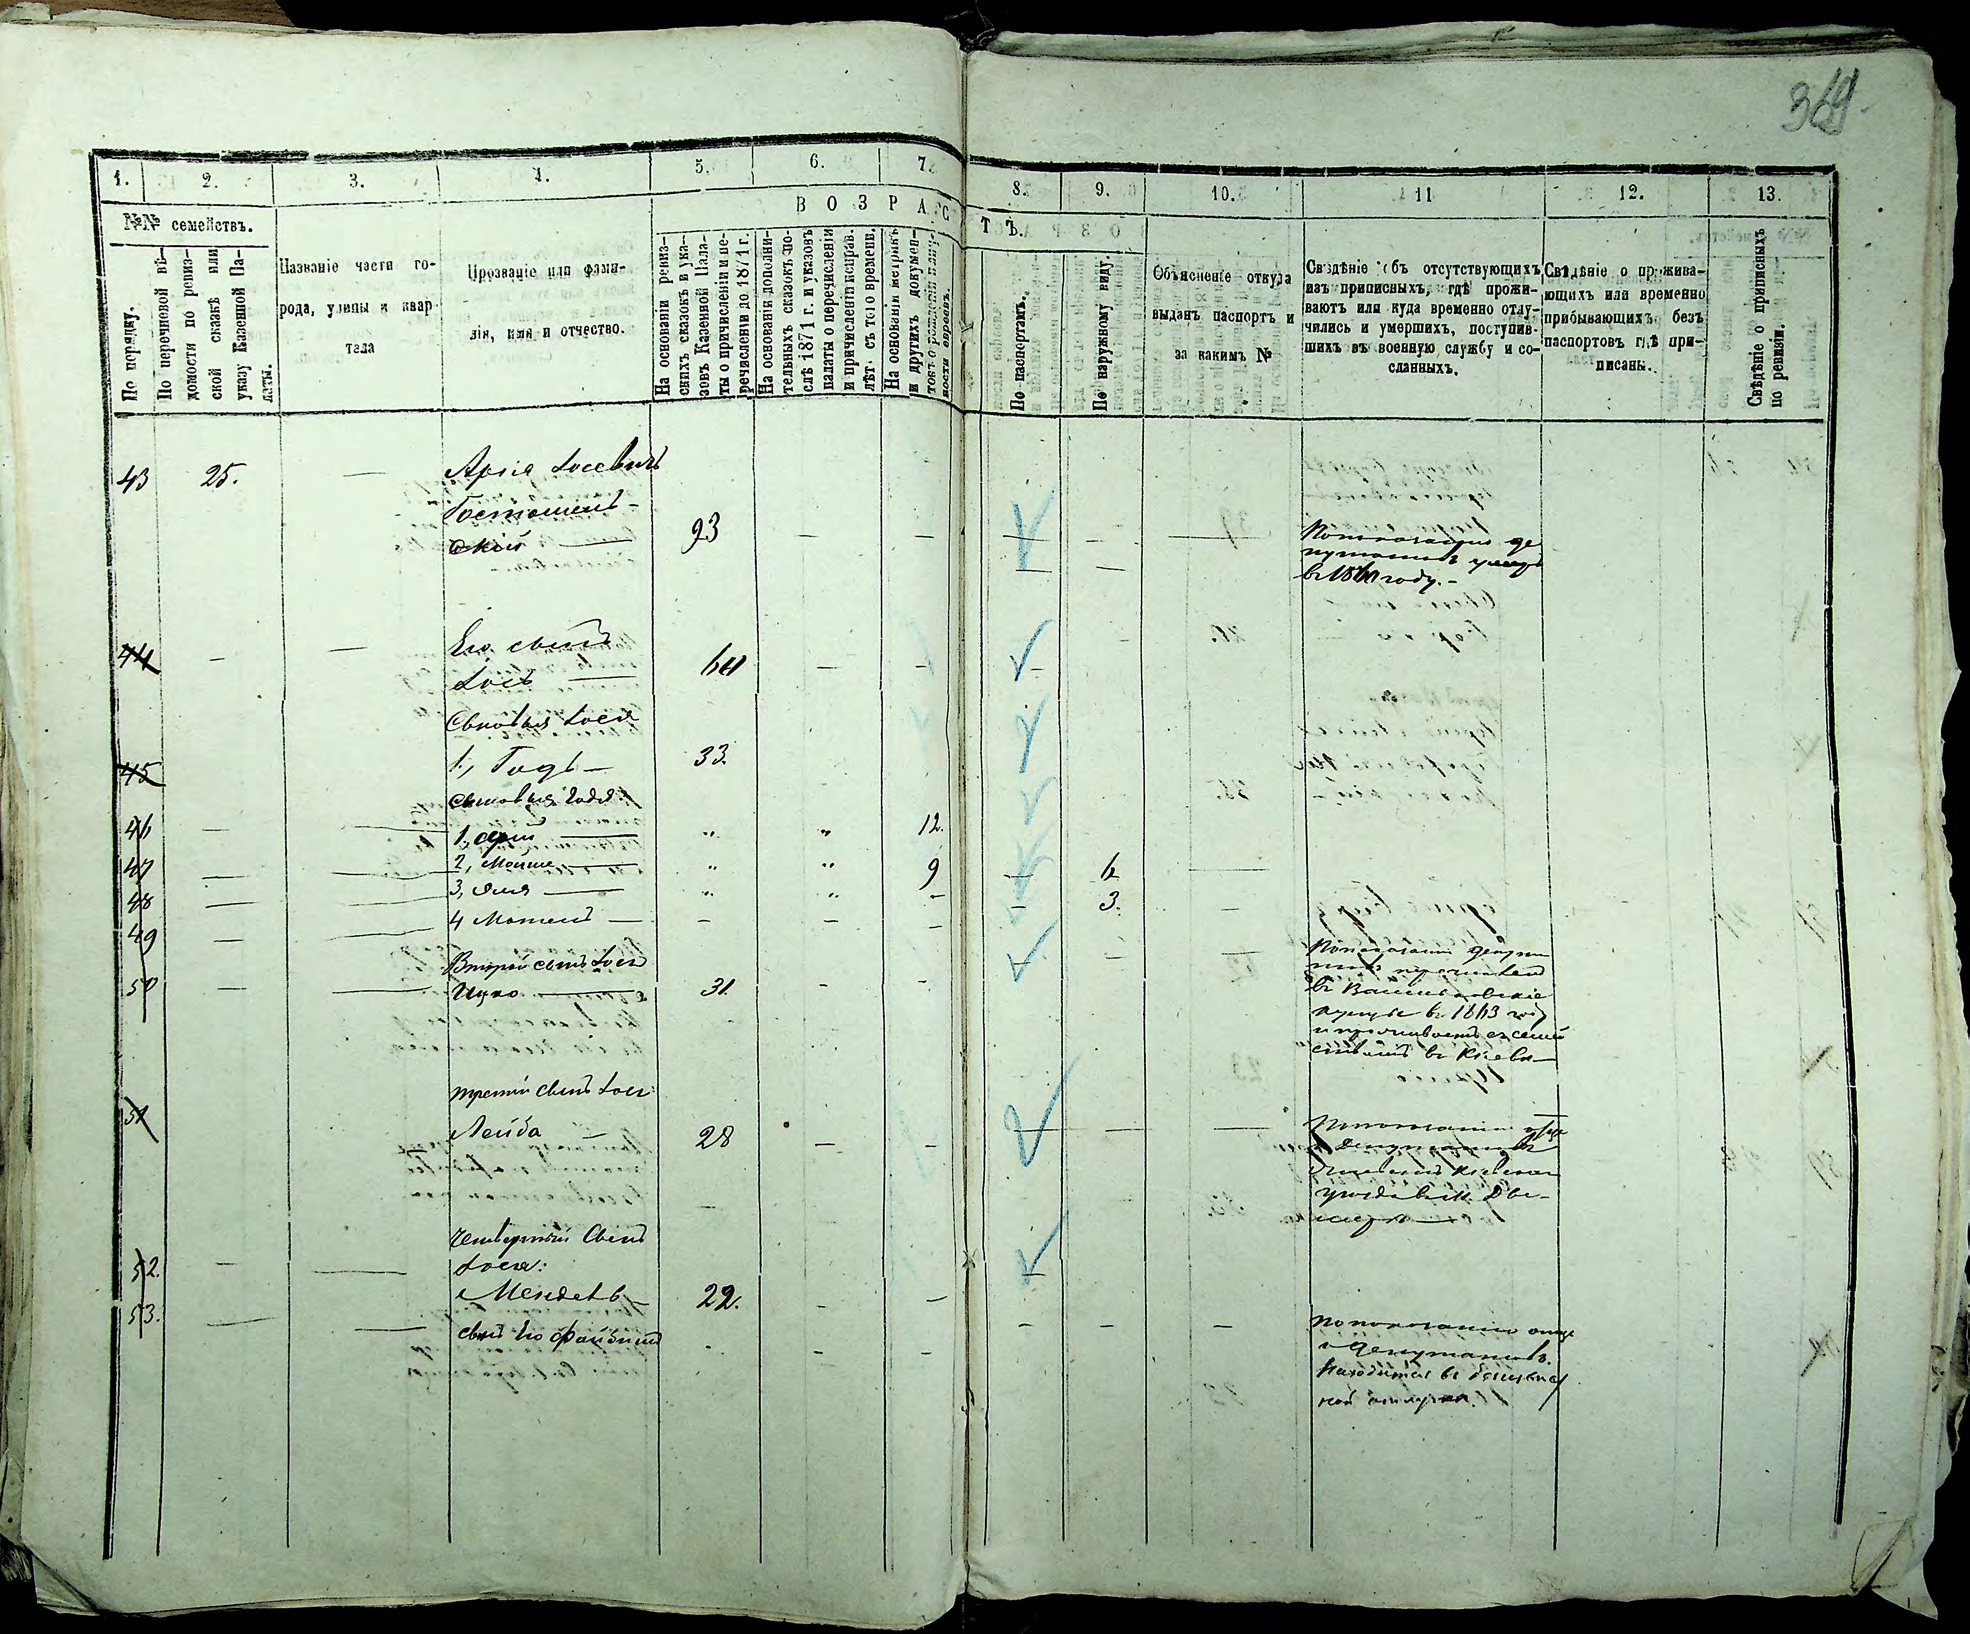 369
1. 2. 3. 4. 5. 6. 7. 8. 9. 10. 11 12. 13.
№№ семействъ.
По порядку.
По перечневой вѣ-
домости по ревиз-
ской сказкѣ или
указу Казенной Па-
латы.
Названіе части го-
рода, улицы и квар-
тала
Прозваніе или фами-
лія, имя и отчество.
ВОЗРАСТЪ.
На основаніи ревиз-
скихъ сказокъ и ука-
зовъ Казенной Пала-
ты о причисленіи и пе-
речисленіи до 1871 г.
На основаніи дополни-
тельныхъ сказокъ по-
слѣ 1871 г. и указовъ
палаты о перечисленіи
и причисленіи исправ.
лѣт. съ того времени.
На основаніи метрикъ
и другихъ докумен-
товъ о рожденіи
ности евреевъ.
По паспортамъ.
По наружному виду.
Объясненіе откуда
выданъ паспортъ и
за какимъ №
Свѣдѣніе объ отсутствующихъ
изъ приписныхъ, гдѣ прожи-
ваютъ или куда временно отлу-
чились и умершихъ, поступив-
шихъ въ военную службу и со-
сланныхъ.
Свѣдѣніе о прожива-
ющихъ или временно
прибывающихъ безъ
паспортовъ гдѣ при-
писаны.
Свѣдѣніе о приписныхъ
по ревизіи.
43 25. — Арія Іосевичъ
Гостомель-
скій — 93 — — — —
По показанію де
путатовъ умеръ
въ году. -
44 — — Его сынъ
Іось — 64 — — —
Сыновья Іося
45 1, Годь — 33.
Сыновья Годя:
46 — — 1, Арій — " " 12.
47 — — 2, Мойше — " " 9 — 6
48 — — 3, — " " - — 3.
49 — — 4 Мотель — - - -
Второй сынъ Іося
50 — — Ицко — 31 - -
По показанію депута
товъ перечисленъ
въ Васильковскіе
купцы въ 1863 году
и проживаетъ съ семей
ствомъ въ Кіевѣ —
третій сынъ Іося:
51 Лейба — 28 — — — — —
По показанію
депутатовъ
Кіевскаго
уѣзда въ м.
четвертый сынъ
52. — — Іося:
Мендель — 22. - —
53. — — сынъ Его - - - - —
По показанію отца
и депутатовъ.
Находится въ безызвѣст
ной отлучкѣ.